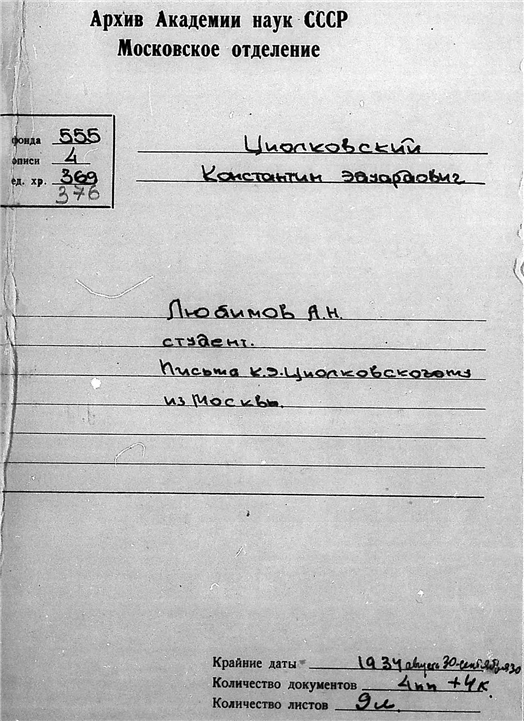 Архив Академии наук СССР
Московское отделение
фонда 555
описи 4
ед. хр. 369
376
Циолковский
Константин Эдуардович
Любимов А.Н.
студент.
Письма К.Э. Циолковскому
из Москвы.
Крайние даты 1934 август 30-сентября 30
Количество документов 4 пп + 4 к.
Количество листов 9 л.